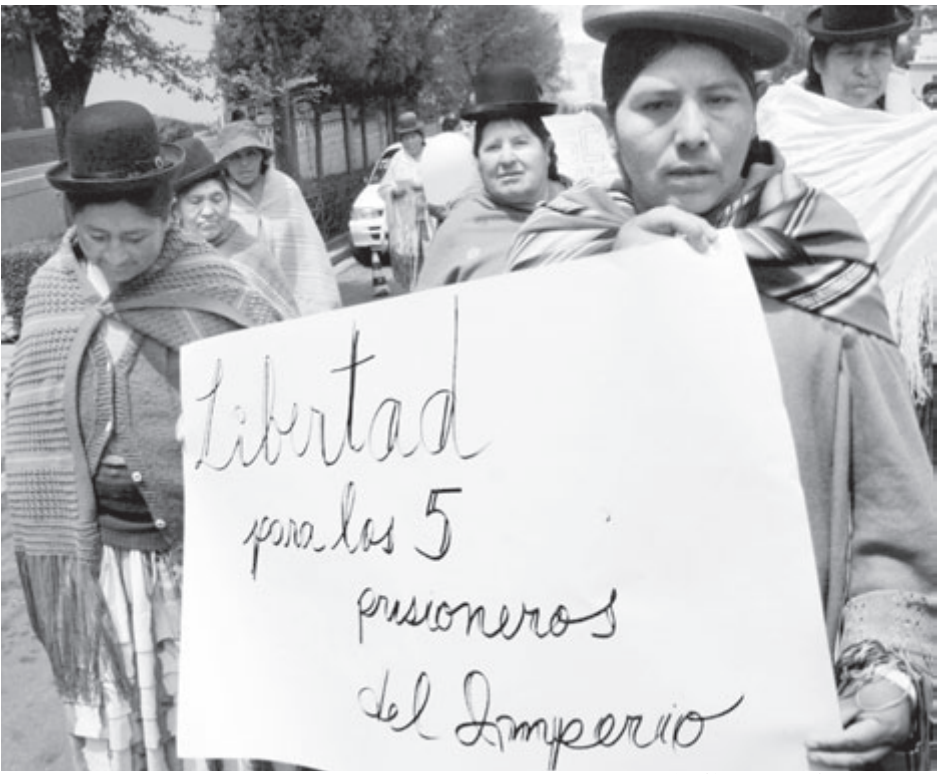 Libertad
para los 5
prisioneros
del Imperio